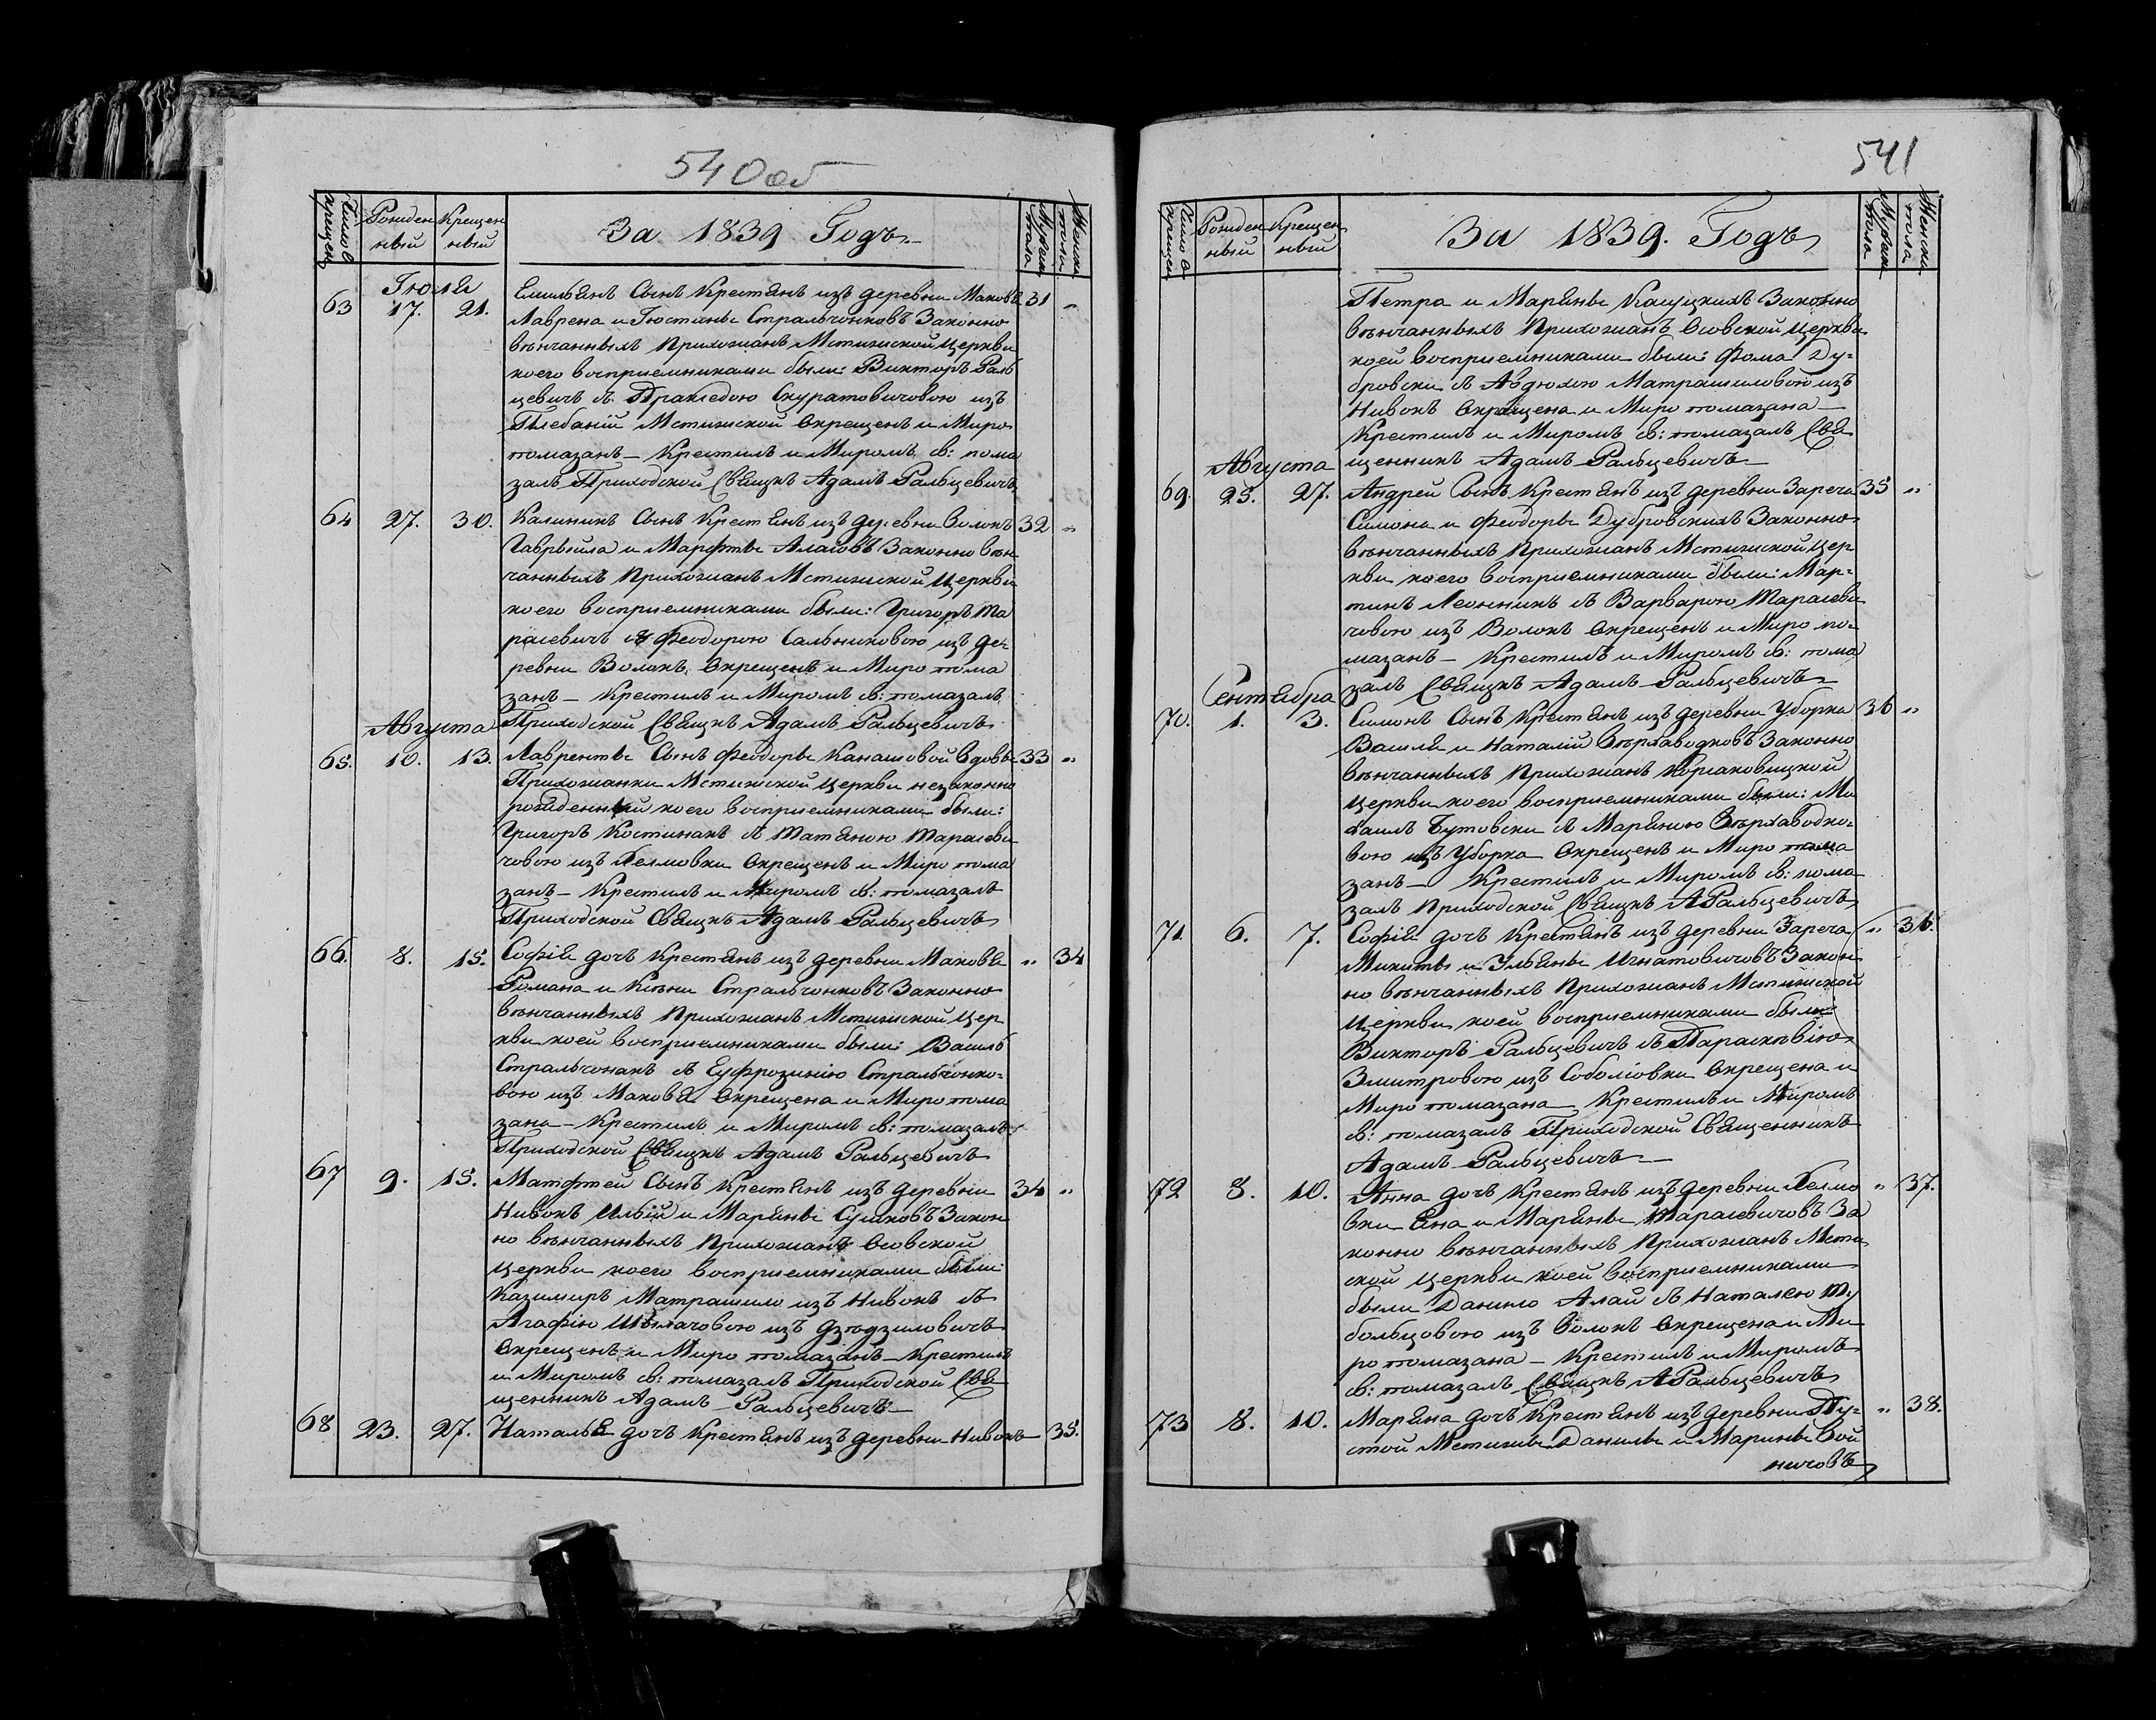 540 об
Число крещен
Рожден
ный
Крещен
ный
За 1839 Годъ
Мужеска
пола
Женска
пола
Іюля
63 17. 21. Емильянъ Сынъ Крестянъ изъ деревни Маковъя 31 "
Лаврена и Іюстины Стральчонковъ Законно
венчанныхъ Прихожанъ Мстижской Церкви
коего восприемниками были: Викторъ Раль
цевичъ съ Праксед​ою Скуратовичовою изъ
Плебаніи Мстижской окрещенъ и Миро
помазанъ — Крестилъ и Миромъ св: пома
залъ Приходской Свящкъ Адамъ Ральцевичъ
64 27. 30. Калиникъ Сынъ Крестянъ изъ деревни Волокъ 32 "
Гаврыила и Марфты Алаювъ Законно вен
чанныхъ Прихожанъ Мстижской Церкви
коего восприемниками были: Григоръ Та
расевичъ съ Феодорою Сальниковою изъ де
ревни Волокъ окрещенъ и Миро пома
занъ — Крестилъ и Миромъ св: помазалъ
Приходской Свящкъ Адамъ Ральцевичъ
Августа
65. 10. 13. Лаврентъ Сынъ Феодоры Канашовой вдовы 33 "
Прихожанки Мстижской Церкви незаконно
рожденный коего восприемниками были:
Григоръ Костинакъ съ Татяною Тарасеви
човою изъ Хелмовки окрещенъ и Миро пома
занъ — Крестилъ и Миромъ св: помазалъ
Приходской Свящкъ Адамъ Ральцевичъ
66. 8. 15. Софія дочъ Крестянъ изъ деревни Маковя " 34
Романа и Ксени Стральчонковъ Законно
венчанныхъ Прихожанъ Мстижской Цер
кви коей восприемниками были: Василь
Стральчонакъ съ Еуфрозинію Стральчонко
вою изъ Маковя окрещена и Миро пома
зана — Крестилъ и Миромъ св: помазалъ
Приходской Свящкъ Адамъ Ральцевичъ
67 9. 15. Матфтей Сынъ Крестянъ изъ деревни 34 "
Нивокъ Ильіи и Маряны Сушковъ Закон
но венчанныхъ Прихожанъ Осовской
Церкви коего восприемниками были
Казимиръ Матрашило изъ Нивокъ съ
Агафію изъ Дзедзиловичъ
окрещенъ и Миро помазанъ — Крестилъ
и Миромъ св: помазалъ Приходской Свя
щенникъ Адамъ Ральцевичъ
68 23. 27. Наталья дочъ Крестянъ изъ деревни Нивокъ — 35.
541
Число крещен
Рожден
ный
Крещен
ный
За 1839. Годъ
Мужеска
пола
Женска
пола
Петра и Маряны Касуцкихъ Законно
венчанныхъ Прихожанъ Осовской Церкви
коей восприемниками были: Фома Ду
бровски съ Авдюхою Матрашиловою изъ
Нивокъ окрещена и Миро помазана —
Крестилъ и Миромъ св: помазалъ Свя
щенникъ Адамъ Ральцевичъ
Августа
69. 25. 27. Андрей Сынъ Крестянъ изъ деревни Зареча 35 "
Симона и Феодоры Дубровскихъ Законно
венчанныхъ Прихожанъ Мстижской Цер
кви коего восприемниками были: Мар
тинъ Леонникъ съ Варварою Тарасеви
човою изъ Волокъ окрещенъ и Миро по
мазанъ — Крестилъ и Миромъ св: пома
залъ Свящкъ Адамъ Ральцевичъ
Сентября
70. 1. 3. Симонъ Сынъ Крестянъ изъ деревни Уборка 36 "
Василя и Наталіи Верхаводковъ Законно
венчанныхъ Прихожанъ Корсаковицкой
Церкви коего восприемниками были: Ми
хаилъ Бутовски съ Маряною Верхаводко
вою изъ Уборка окрещенъ и Миро пома
занъ — Крестилъ и Миромъ св: пома
залъ Приходской Свящкъ А Ральцевичъ
71. 6. 7. Софія дочъ Крестянъ изъ деревни Зареча " 36.
Микиты и Ульяны Игнатовичовъ Закон
но венчанныхъ Прихожанъ Мстижской
Церкви коей восприемниками были
Викторъ Ральцевичъ съ Параскевію
Змитровою изъ Соболювки окрещена и
Миро помазана Крестилъ и Миромъ
св: помазалъ Приходской Священникъ
Адамъ Ральцевичъ
72 8. 10. Анна дочъ Крестянъ изъ деревни Хелмо " 37.
вки Яна и Маряны Тарасевичовъ За
конно венчанныхъ Прихожанъ Мсти
ской Церкви коей восприемниками
были Данило Алай съ Наталею Ту
больцовою изъ Волокъ окрещена и Ми
ро помазана — Крестилъ и Миромъ
св: помазалъ Свящкъ А Ральцевичъ
73 8. 10. Маряна дочъ Крестянъ изъ деревни Пу " 38.
стой Мстижи Данилы и Марины Вой
ничовъ